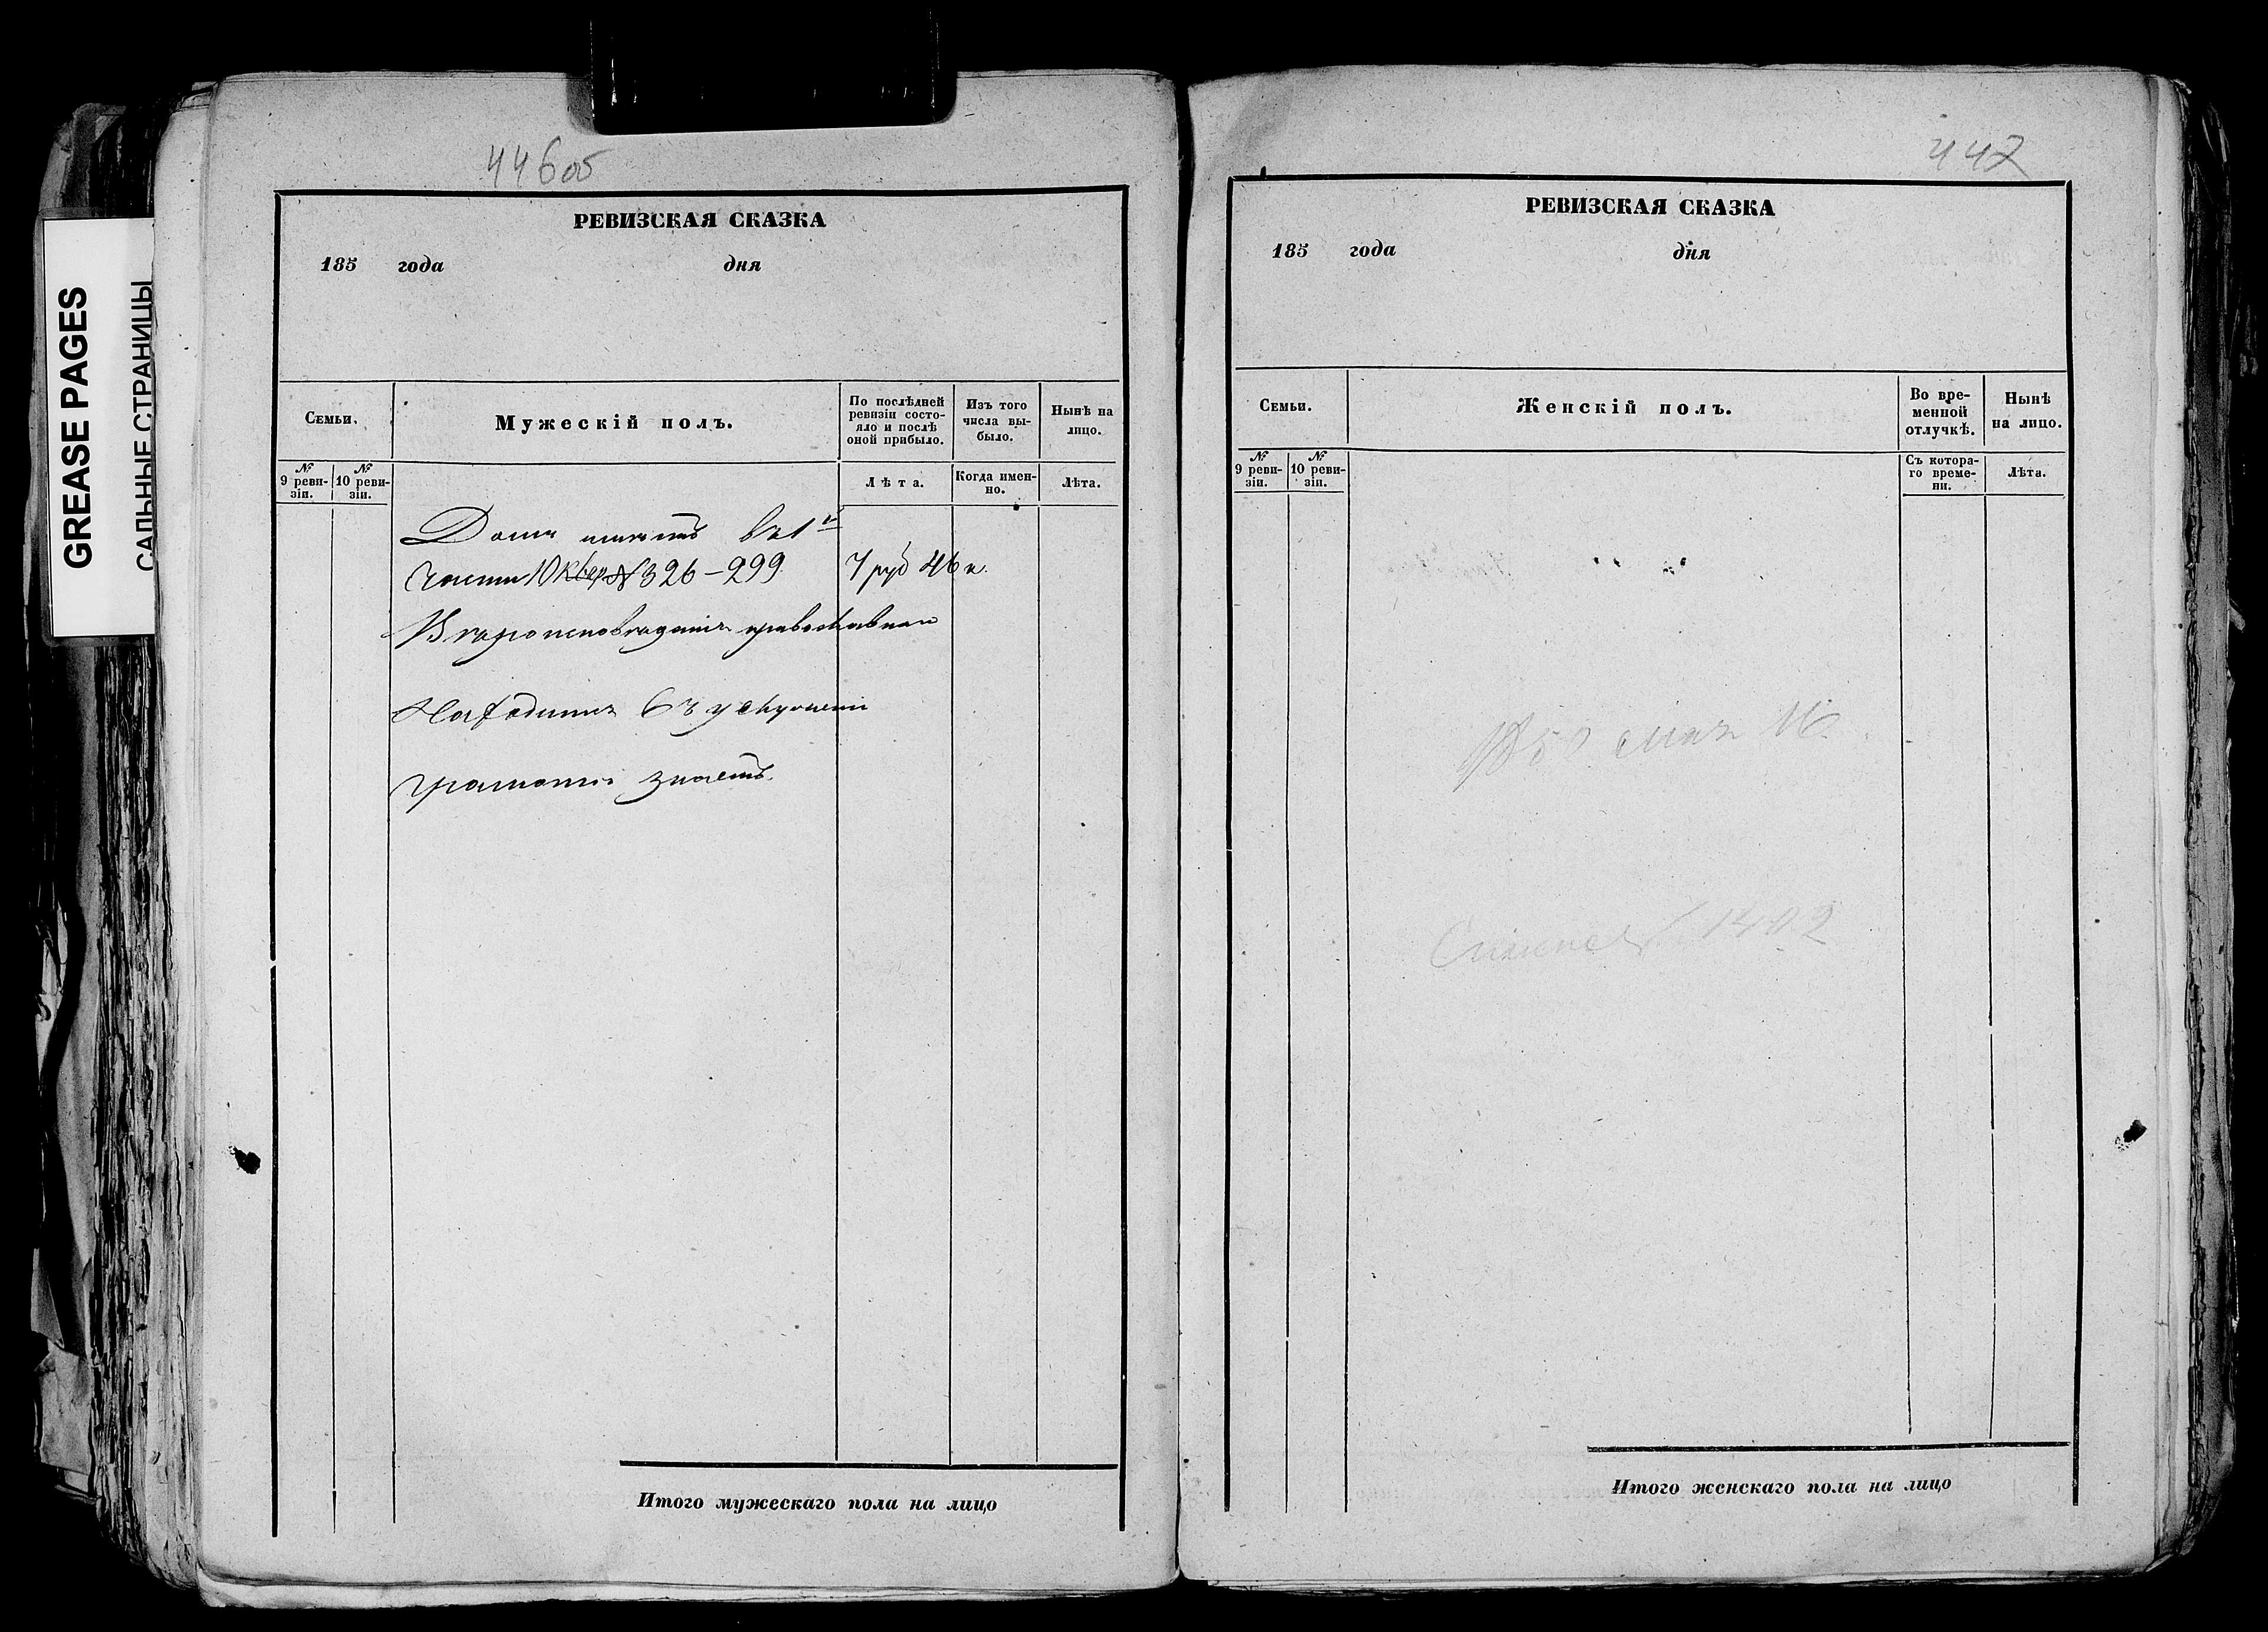 GREASE PAGES
САЛЬНЫЕ СТРАНИЦЫ
446об
РЕВИЗСКАЯ СКАЗКА
185 года дня
Семьи.
Мужескій полъ.
По послѣдней ревизіи состояло и послѣ оной прибыло.
Изъ того числа выбыло.
Нынѣ на лицо.
№ 9 ревизіи.
№ 10 ревизіи.
Лѣта.
Когда именно.
Лѣта.
Домъ имѣетъ въ 1й
части 10 квар № 326-299 7 руб 46 к.
Вѣроисповѣданія православнаго
грамотѣ знаетъ.
Итого мужескаго пола на лицо
447
РЕВИЗСКАЯ СКАЗКА
185 года дня
Семьи.
Женскій полъ.
Во временной отлучкѣ.
Нынѣ на лицо.
№ 9 ревизіи.
№ 10 ревизіи.
Съ котораго времени.
Лѣта.
Итого женскаго пола на лицо